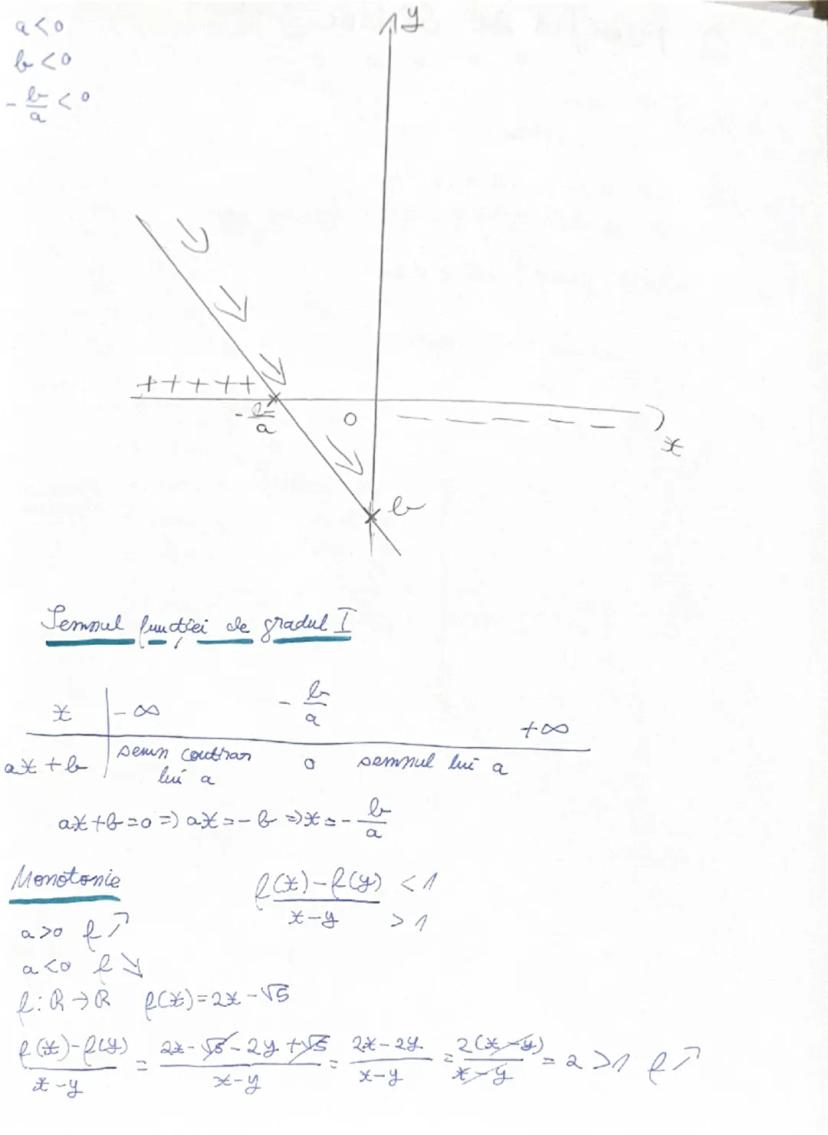 a<0
b<0
-b/a <0
y
+++++
-b/a
0
— — — — —
x
b
Semnul funcției de gradul I
x | -∞ -b/a +∞
ax+b | semn contrar lui a 0 semnul lui a
ax+b=0 => ax=-b => x=-b/a
Monotonie
(f(x)-f(y))/(x-y) <1 >1
a>0 f↗
a<0 f↘
f:R→R f(x)=2x-√5
(f(x)-f(y))/(x-y) = (2x-√5-2y+√5)/(x-y) = (2x-2y)/(x-y) = 2(x-y)/(x-y) = 2 >1 f↗